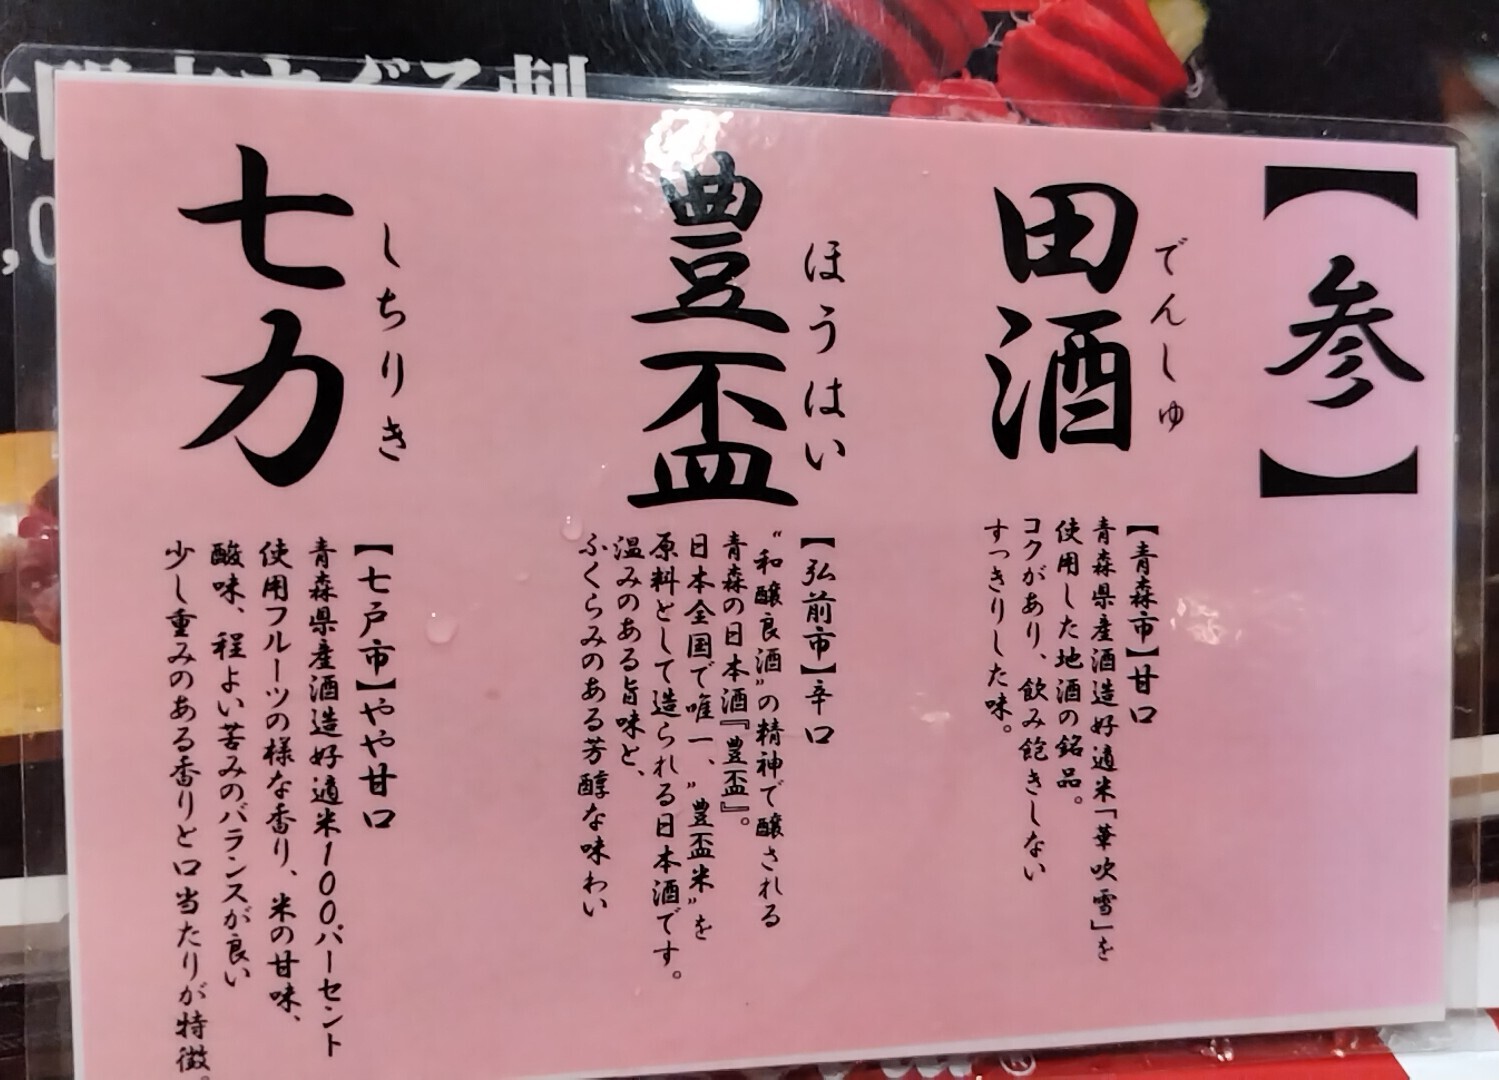 【参】
田酒
でんしゅ
【青森市】甘口
青森県産酒造好適米「華吹雪」を
使用した地酒の銘品。
コクがあり、飲み飽きしない
すっきりした味。
豊盃
ほうはい
【弘前市】辛口
"和醸良酒"の精神で醸される
青森の日本酒『豊盃』。
日本全国で唯一、"豊盃米"を
原料として造られる日本酒です。
温みのある旨味と、
ふくらみのある芳醇な味わい
七力
しちりき
【七戸市】やや甘口
青森県産酒造好適米100パーセント
使用フルーツの様な香り、米の甘味、
酸味、程よい苦みのバランスが良い
少し重みのある香りと口当たりが特徴。